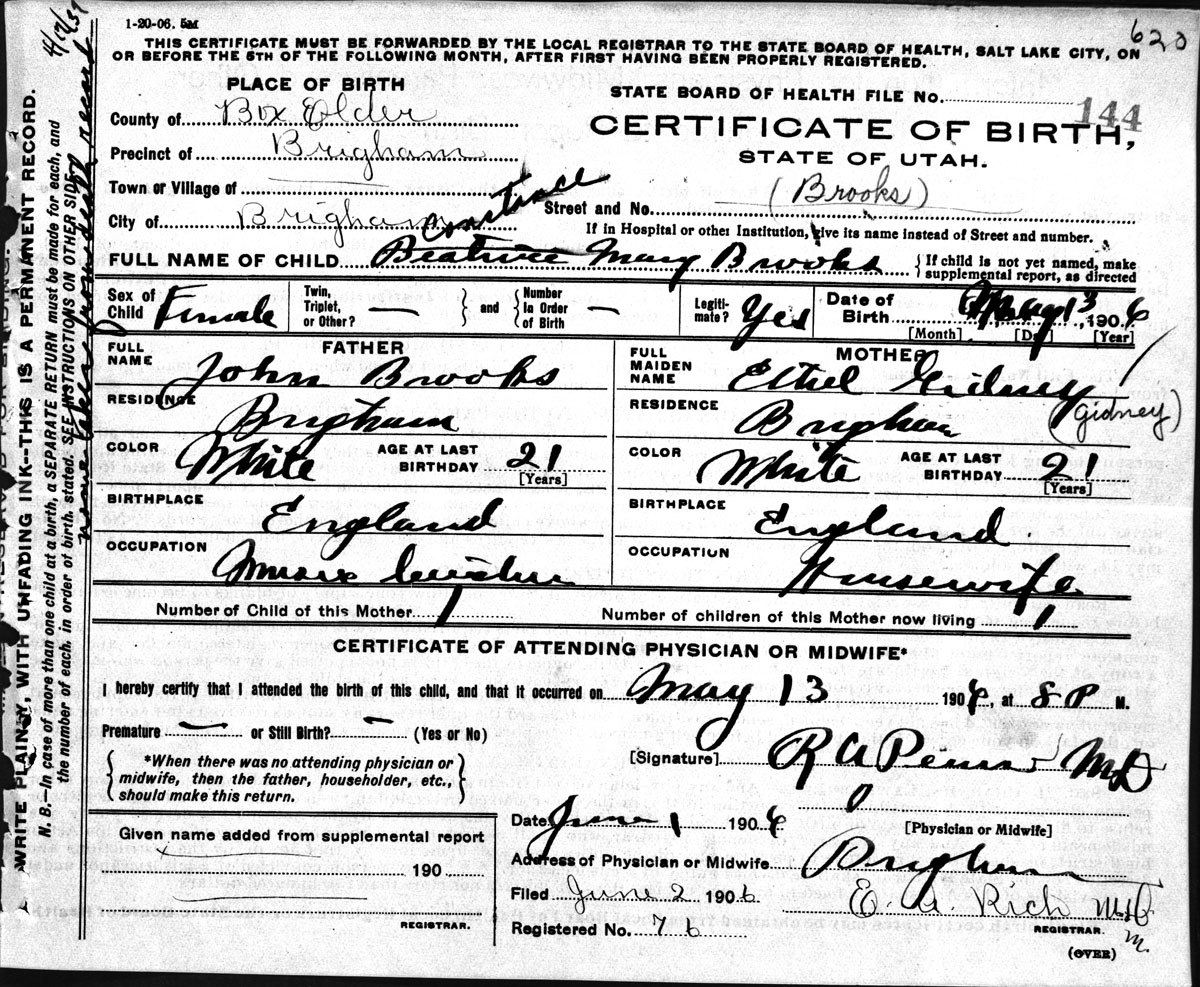 1-20-06. 5M
620
THIS CERTIFICATE MUST BE FORWARDED BY THE LOCAL REGISTRAR TO THE STATE BOARD OF HEALTH, SALT LAKE CITY, ON
OR BEFORE THE 5TH OF THE FOLLOWING MONTH, AFTER FIRST HAVING BEEN PROPERLY REGISTERED.
PLACE OF BIRTH
STATE BOARD OF HEALTH FILE No.
144
County of Box Elder
CERTIFICATE OF BIRTH,
Precinct of Brigham
STATE OF UTAH.
Town or Village of
(Brooks)
City of Brigham
Street and No.
If in Hospital or other Institution, give its name instead of Street and number.
FULL NAME OF CHILD Beatrice Mary Brooks
{ If child is not yet named, make
supplemental report, as directed
Sex of Child Female
Twin, Triplet, or Other? —
and
Number In Order of Birth —
Legiti- mate? Yes
Date of Birth May 13, 1906
[Month] [Day] [Year]
FATHER
MOTHER
FULL NAME John Brooks
FULL MAIDEN NAME Ethel Gidney
RESIDENCE Brigham
RESIDENCE Brigham
(Gidney)
COLOR White
AGE AT LAST BIRTHDAY 21
[Years]
COLOR White
AGE AT LAST BIRTHDAY 21
[Years]
BIRTHPLACE England
BIRTHPLACE England
OCCUPATION
OCCUPATION Housewife
Number of Child of this Mother 1
Number of children of this Mother now living 1
CERTIFICATE OF ATTENDING PHYSICIAN OR MIDWIFE*
I hereby certify that I attended the birth of this child, and that it occurred on May 13 1906, at 8 P M.
Premature — or Still Birth? — (Yes or No)
{ *When there was no attending physician or
midwife, then the father, householder, etc.,
should make this return. }
[Signature] R A Pearse MD
[Physician or Midwife]
Date June 1 1906
Address of Physician or Midwife Brigham
Filed June 2 1906
E. A. Rich M.D.
REGISTRAR.
Registered No. 76
(OVER)
Given name added from supplemental report
190
REGISTRAR.
WRITE PLAINLY WITH UNFADING INK--THIS IS A PERMANENT RECORD.
N. B.—In case of more than one child at a birth, a SEPARATE RETURN must be made for each, and
the number of each, in order of birth, stated. SEE INSTRUCTIONS ON OTHER SIDE.
name taken from death record